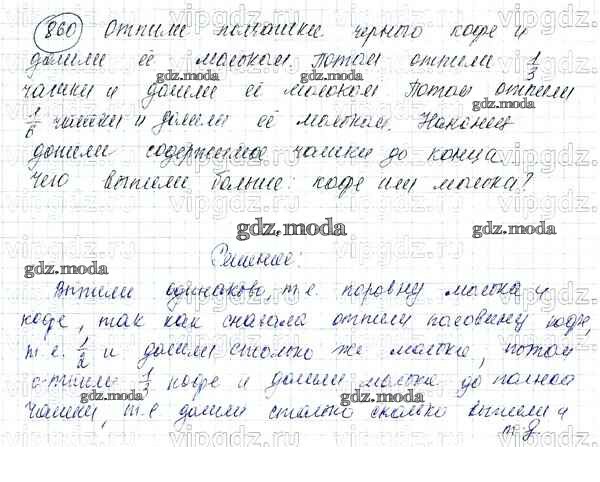 860 Отпили полчашки черного кофе и
долили её молоком. Потом отпили 1/3
чашки и долили её молоком Потом отпили
1/6 чашки и долили её молоком. Наконец
допили содержимое чашки до конца.
Чего выпили больше: кофе или молока?
Решение:
Выпили одинаково, т.е. поровну молока и
кофе, так как сначала отпили половину кофе,
т.е. 1/2 и долили столько же молока, потом
отпили 1/3 кофе и долили молока до полной
чашки, т.е долили столько сколько выпили и
т.д
gdz.moda
vipgdz.ru